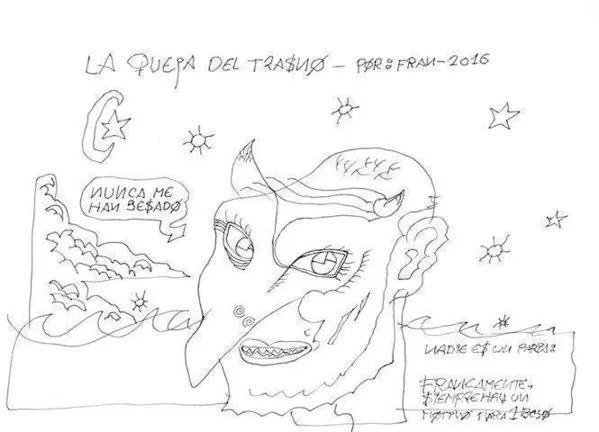 LA QUEJA DEL TRASNO – POR: FRAN – 2016
NUNCA ME
HAN BESADO
NADIE ES UN
FRANCAMENTE,
SIEMPRE HAY UN
MOTIVO PARA 1 BESO